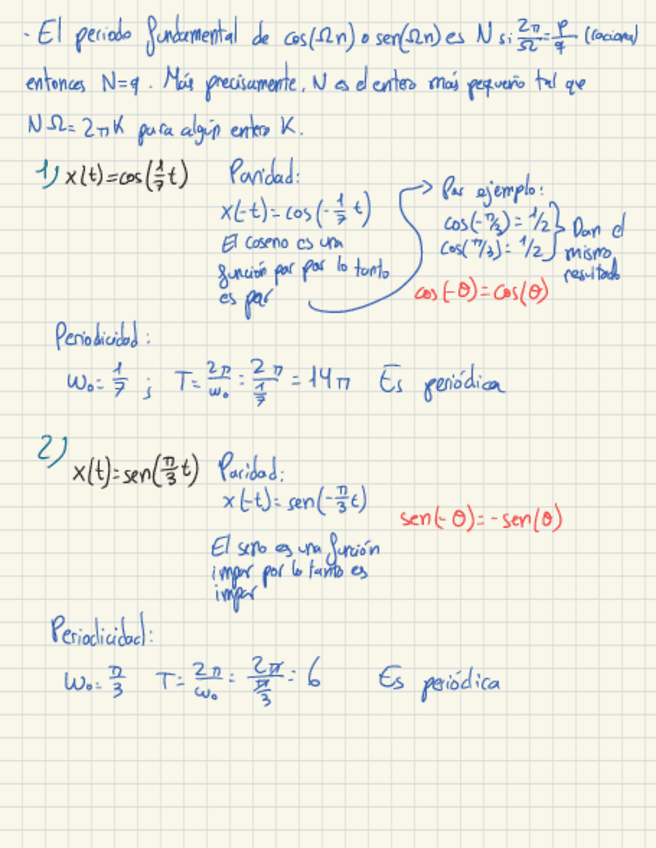 - El periodo fundamental de cos(Ωn) o sen(Ωn) es N si 2π/Ω = p/q (racional)
entonces N=q. Más precisamente, N es el entero más pequeño tal que
NΩ = 2πK para algún entero K.
1) x(t)=cos(1/7 t)
Paridad:
x(-t)=cos(-1/7 t)
El coseno es una
función par por lo tanto
es par
Por ejemplo:
cos(-π/3) = 1/2
cos(π/3) = 1/2
Dan el
mismo
resultado
cos(-θ)=cos(θ)
Periodicidad:
ω₀ = 1/7 ; T = 2π/ω₀ = 2π/(1/7) = 14π Es periódica
2)
x(t)=sen(π/3 t)
Paridad:
x(-t)=sen(-π/3 t)
sen(-θ)=-sen(θ)
El seno es una función
impar por lo tanto es
impar
Periodicidad:
ω₀ = π/3 T = 2π/ω₀ = 2π/(π/3) = 6 Es periódica